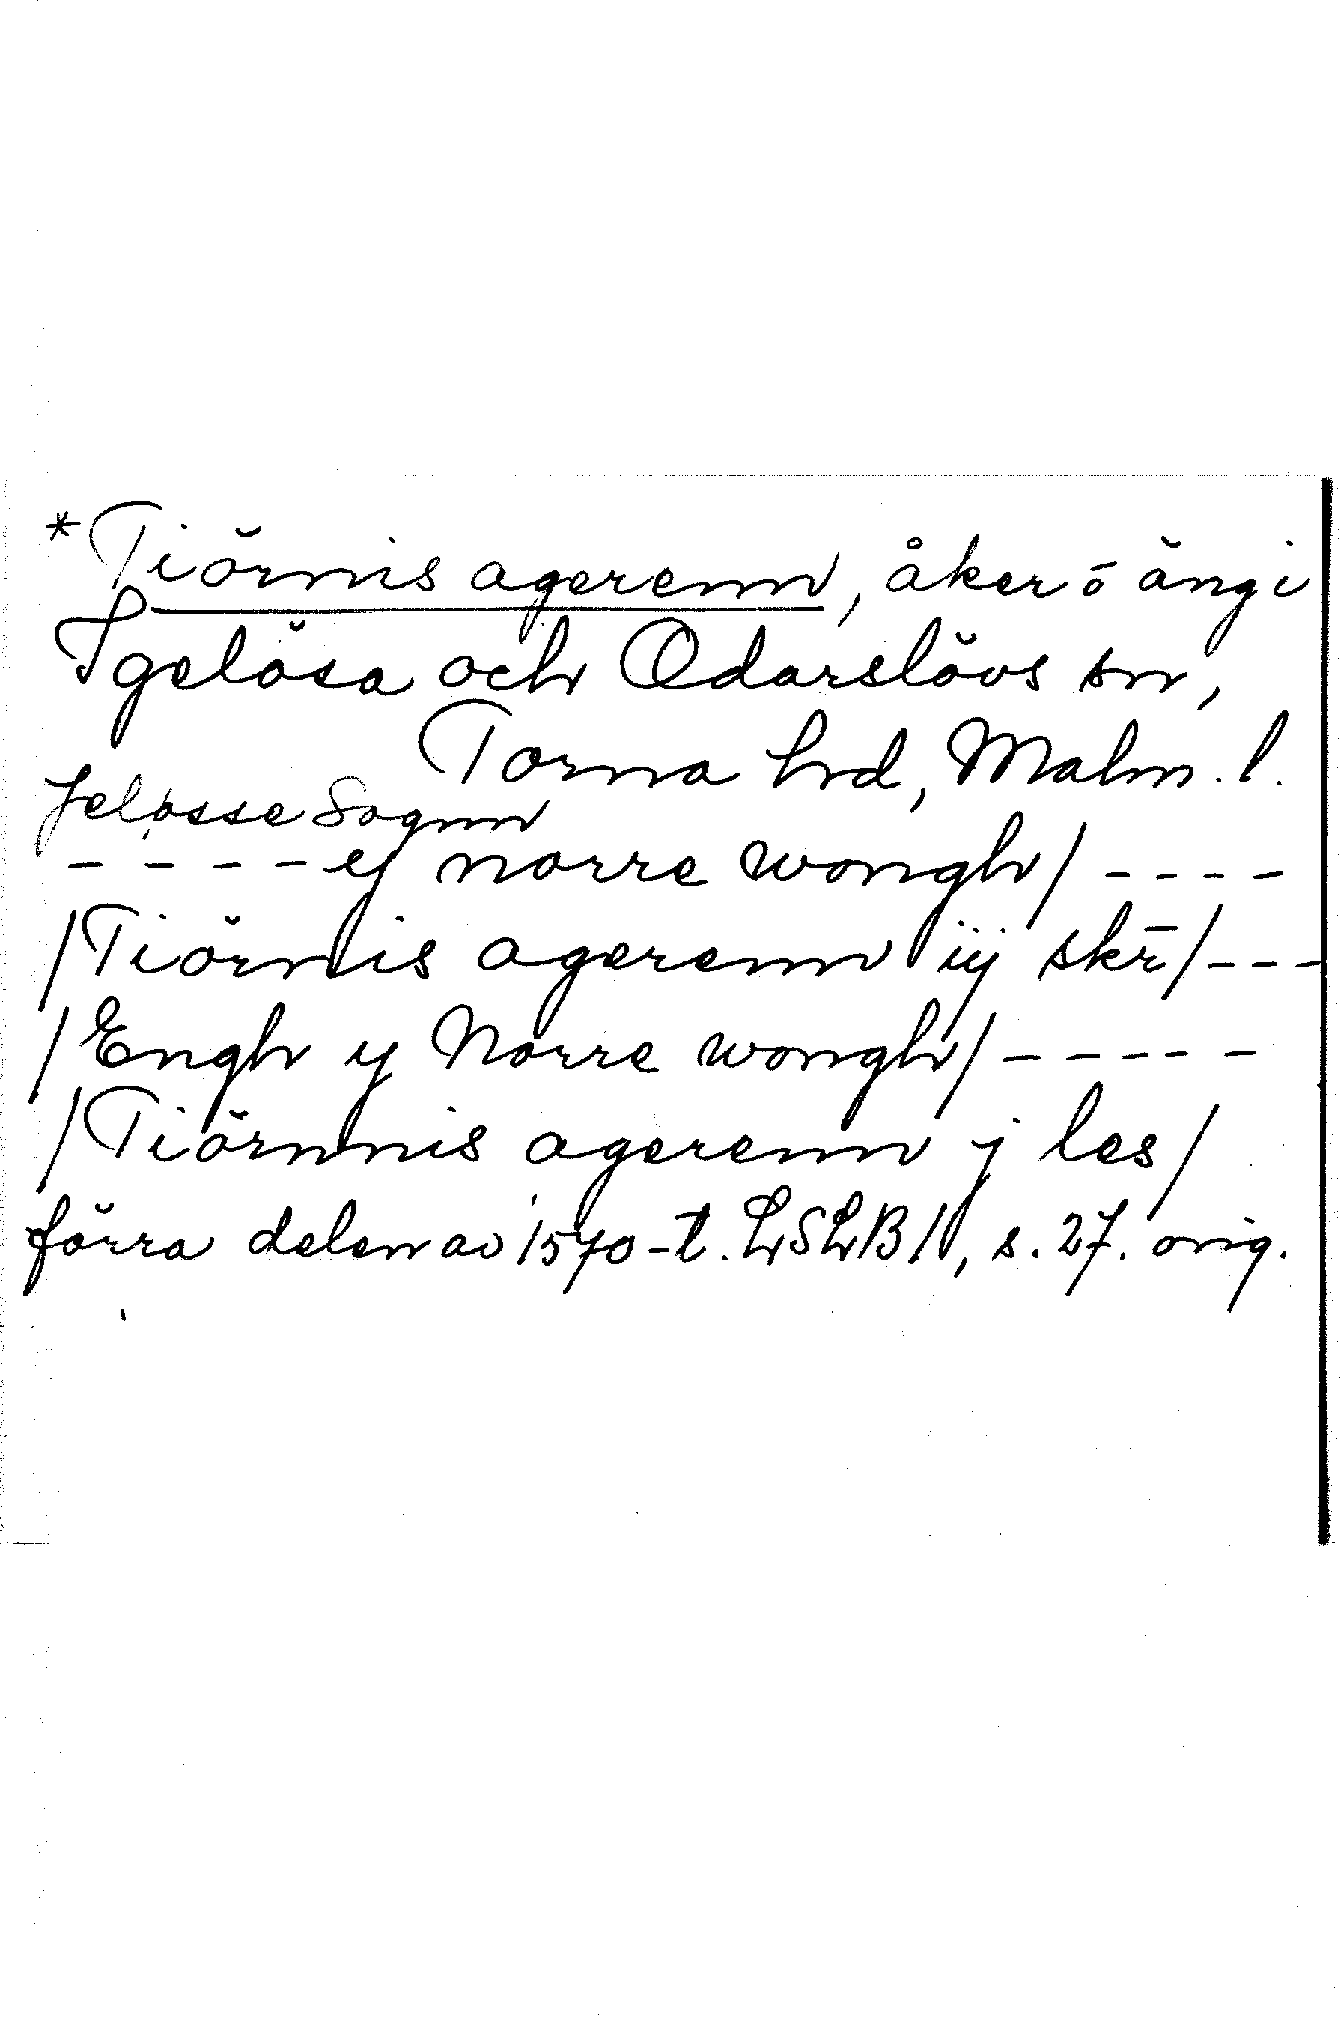 *Tiörnis agerenn, åker o äng i
Igelösa och Odarslövs sn,
Torna hd, Malm. l.
Jelösse Sognn
---- ej norre wongh/ ----
/Tiörnis agerenn iij skr̄/---
/Engh y Norre wongh/-----
/Tiörnnis agerenn j les/
förra delen av 1570-t. LSLB II, s. 27. orig.